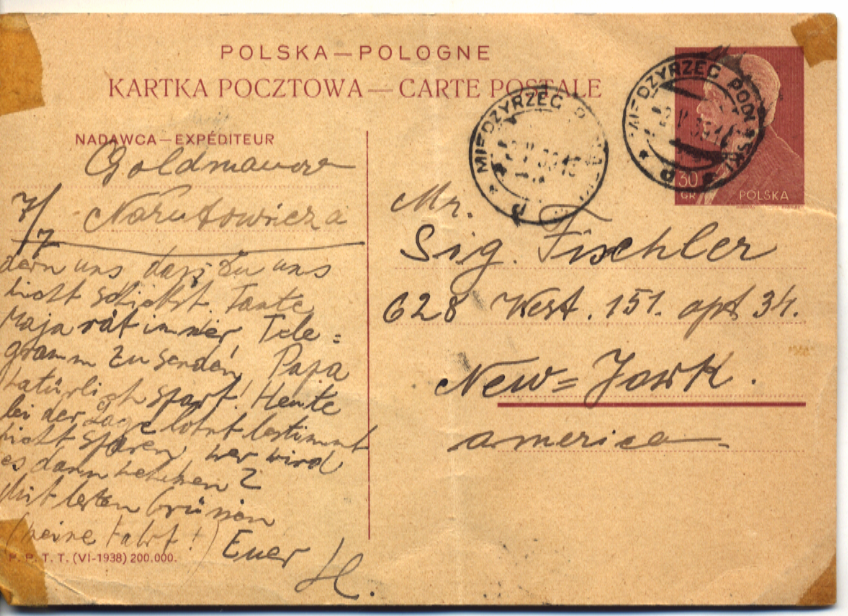 POLSKA—POLOGNE
KARTKA POCZTOWA—CARTE POSTALE
NADAWCA—EXPÉDITEUR
Goldmanowa
Narutowicza
7/7
dern uns dass Du uns
nicht schickst. Tante
Maja rät immer Tele=
gramm zu senden, Papa
natürlich spart! Heute
bei der Lage lohnt bestimmt
nicht sparen, wer wird
es dann
Mit besten Grüssen
Euer H.
P. P. T. T. (VI-1938) 200.000.
MIĘDZYRZEC PODLASKI
MIĘDZYRZEC PODLASKI
30 GR
POLSKA
Mr.
Sig. Fischler
628 West. 151. apt 34.
New=York.
america